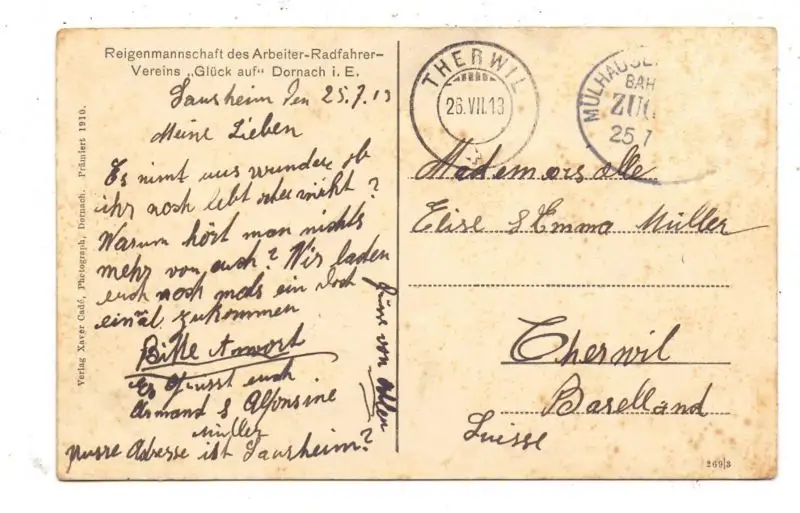 Reigenmannschaft des Arbeiter-Radfahrer-
Vereins „Glück auf" Dornach i. E.
Sausheim den 25.7.13
Meine Lieben
Es nimt uns wunder ob
ihr noch lebt oder nicht?
Warum hört man nichts
mehr von euch? Wir laden
euch noch mals ein doch
einal zukommen
Bitte Anwort
Es grüsst euch
Armand & Alfonsine
Müller
unsre Adresse ist Sausheim?
von Allen
Verlag Xaver Cadé, Photograph, Dornach. Prämiert 1910.
THERWIL
26.VII.13
MÜLHAUSE
BAH
ZUG
25.7
Mademorsolle
Elise & Emma Müller
Therwil
Baselland
Suisse
269/3